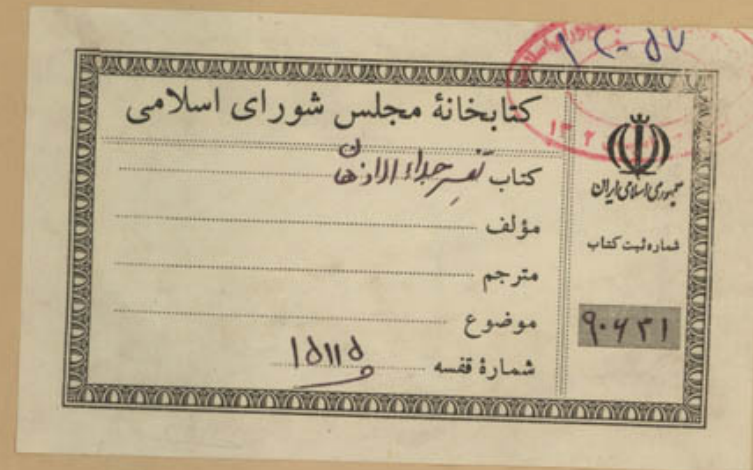 کتابخانهٔ مجلس شورای اسلامی
کتاب تفسیر جلاء الاذهان
مؤلف
مترجم
موضوع
شمارهٔ قفسه ۱۵۱۱۵
جمهوری اسلامی ایران
شماره ثبت کتاب
۹۰۶۳۱